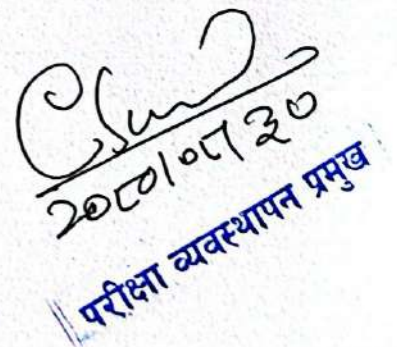 २०८०|०८|३०
परीक्षा व्यवस्थापन प्रमुख